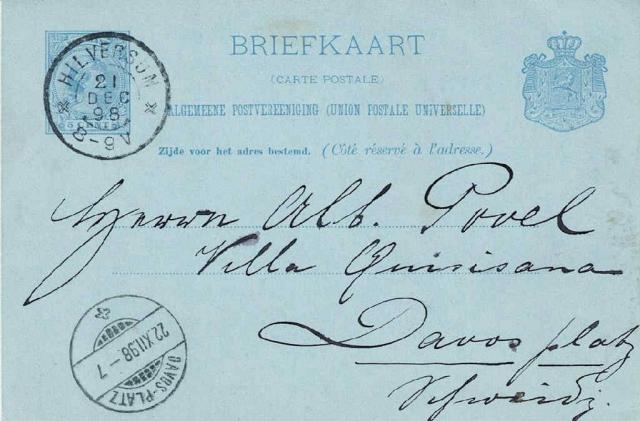 BRIEFKAART
(CARTE POSTALE)
ALGEMEENE POSTVEREENIGING (UNION POSTALE UNIVERSELLE)
Zijde voor het adres bestemd. (Côté réservé à l'adresse.)
HILVERSUM
21
DEC
98
8-9V
5 CENT
Herrn Alb. Povel
Villa Quisisana
Davos platz
Schweiz.
22.XII.98-7
DAVOS-PLATZ